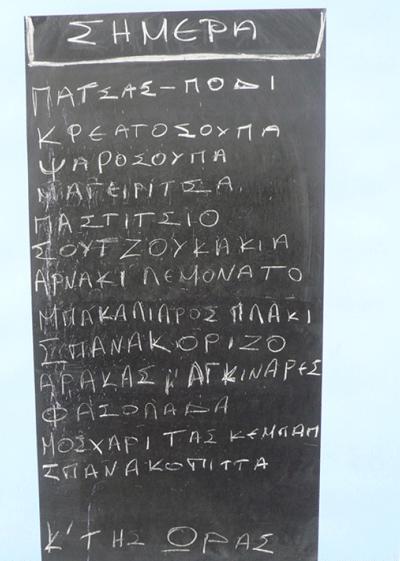 ΣΗΜΕΡΑ
ΠΑΤΣΑΣ-ΠΟΔΙ
ΚΡΕΑΤΟΣΟΥΠΑ
ΨΑΡΟΣΟΥΠΑ
ΜΑΓΕΙΡΙΤΣΑ
ΠΑΣΤΙΤΣΙΟ
ΣΟΥΤΖΟΥΚΑΚΙΑ
ΑΡΝΑΚΙ ΛΕΜΟΝΑΤΟ
ΜΠΑΚΑΛΙΑΡΟΣ ΠΛΑΚΙ
ΣΠΑΝΑΚΟΡΙΖΟ
ΑΡΑΚΑΣ ΑΓΚΙΝΑΡΕΣ
ΦΑΣΟΛΑΔΑ
ΜΟΣΧΑΡΙ ΤΑΣ ΚΕΜΠΑΠ
ΣΠΑΝΑΚΟΠΙΤΤΑ
Κ' ΤΗΣ ΩΡΑΣ